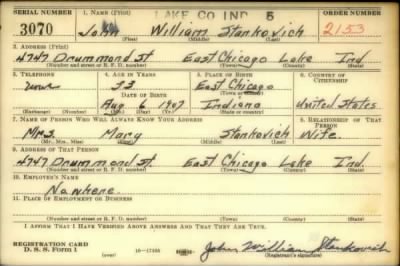 SERIAL NUMBER 1. NAME (Print) LAKE CO IND 5 ORDER NUMBER
3070 John William Stankovich 2153
(First) (Middle) (Last)
2. ADDRESS (Print)
4747 Drummond St East Chicago Lake Ind
(Number and street or R. F. D. number) (Town) (County) (State)
3. TELEPHONE 4. AGE IN YEARS 5. PLACE OF BIRTH 6. COUNTRY OF CITIZENSHIP
none 33 East Chicago
DATE OF BIRTH (Town or county)
Aug 6 1907 Indiana United States
(Exchange) (Number) (Mo.) (Day) (Yr.) (State or country)
7. NAME OF PERSON WHO WILL ALWAYS KNOW YOUR ADDRESS 8. RELATIONSHIP OF THAT PERSON
Mrs. Mary Stankovich Wife.
(Mr., Mrs., Miss) (First) (Middle) (Last)
9. ADDRESS OF THAT PERSON
4747 Drummond St East Chicago Lake Ind.
(Number and street or R. F. D. number) (Town) (County) (State)
10. EMPLOYER'S NAME
Nowhere.
11. PLACE OF EMPLOYMENT OR BUSINESS
(Number and street or R. F. D. number) (Town) (County) (State)
I AFFIRM THAT I HAVE VERIFIED ABOVE ANSWERS AND THAT THEY ARE TRUE.
REGISTRATION CARD
D. S. S. Form 1 John William Stankovich
(Registrant's signature)